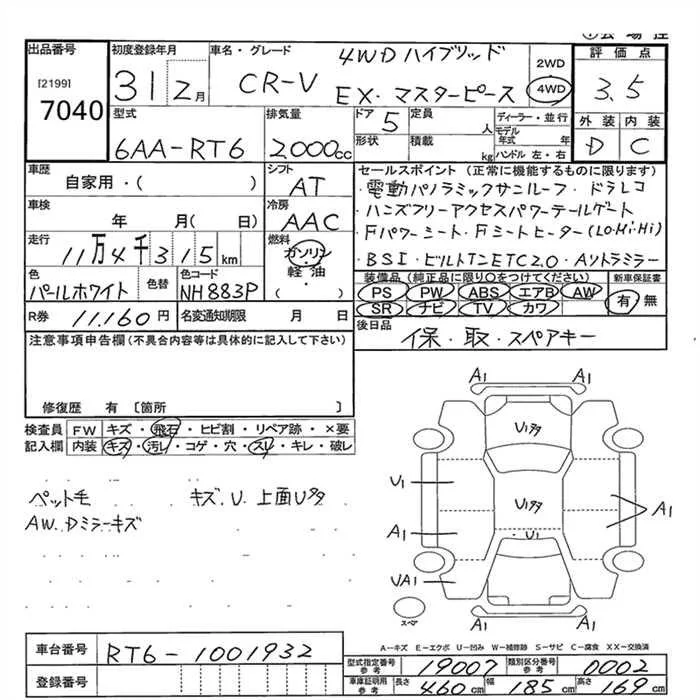 出品番号 初度登録年月 車名・グレード 4WDハイブリッド 2WD 評価点
[2199] 7040 31 2月 CR-V EX・マスターピース 4WD 3.5
型式 排気量 ドア 5 定員 人 ディーラー・並行 外装 内装
6AA-RT6 2000cc 形状 積載 kg モデル年式 年 ハンドル 左・右 D C
車歴 シフト セールスポイント(正常に機能するものに限ります)
自家用・( ) AT ・電動パノラミックサンルーフ・ドラレコ
車検 冷房 ・ハンズフリーアクセスパワーテールゲート
年 月( 日) AAC ・Fパワーシート・Fシートヒーター(Lo・Mi・Hi)
走行 燃料
11万4千315km ガソリン ・BSI・ビルトインETC2.0・Aソトラミラー
色 色替 色コード 軽油 装備品(純正品に限り○をつけてください) 新車保証書
パールホワイト NH883P ・( ) PS PW ABS エアB AW 有 無
SR ナビ TV カワ
R券 11,160円 名変通知期限 月 日 後日品
注意事項申告欄(不具合内容等は具体的に記入して下さい) 保・取・スペアキー
修復歴 有 〔箇所 〕
検査員 FW キズ・飛石・ヒビ割・リペア跡・×要
記入欄 内装 キズ・汚レ・コゲ・穴・スレ・キレ・破レ
ペット毛 キズ.U.上面Uタ
AW.Dミラーキズ
A1 A1
U1タ
U1 U1タ A1
A1 U1
UA1
スペア A1 A1
A−キズ E−エクボ U−凹み W−補修跡 S−サビ C−腐食 XX−交換済
車台番号 RT6-1001932
型式指定番号 参考 19007 類別区分番号 参考 0002
登録番号 車庫証明用 参考 長さ 460cm 幅 185cm 高さ 169cm